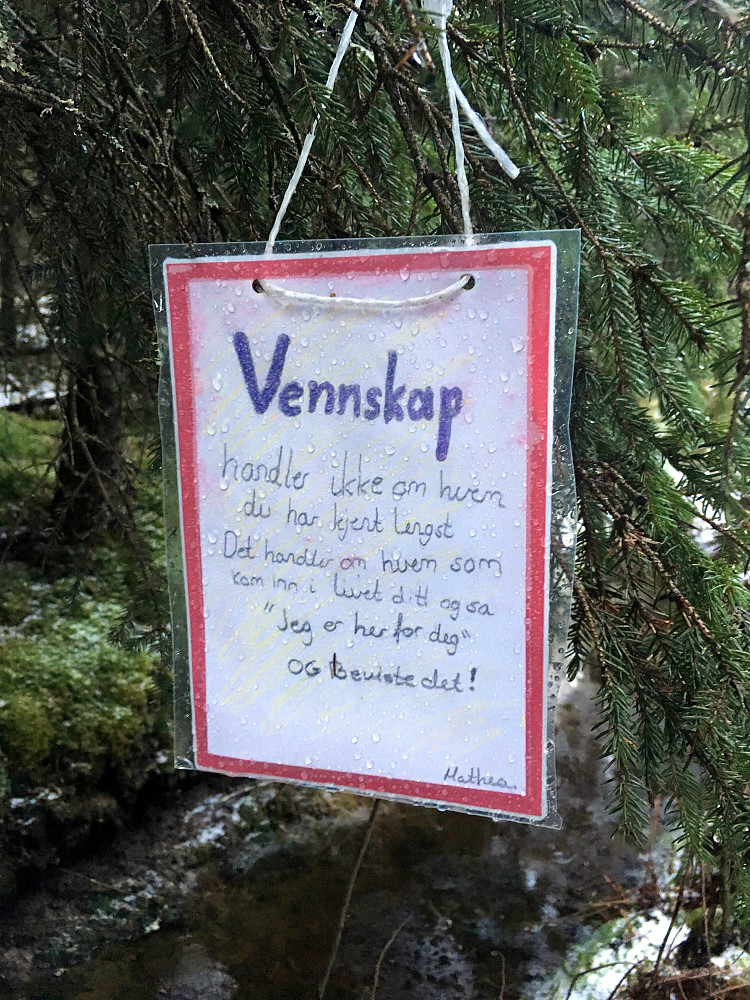 Vennskap
handler ikke om hvem
du har kjent lengst
Det handler om hvem som
kom inn i livet ditt og sa
"Jeg er her for deg"
OG Beviste det!
Mathea.